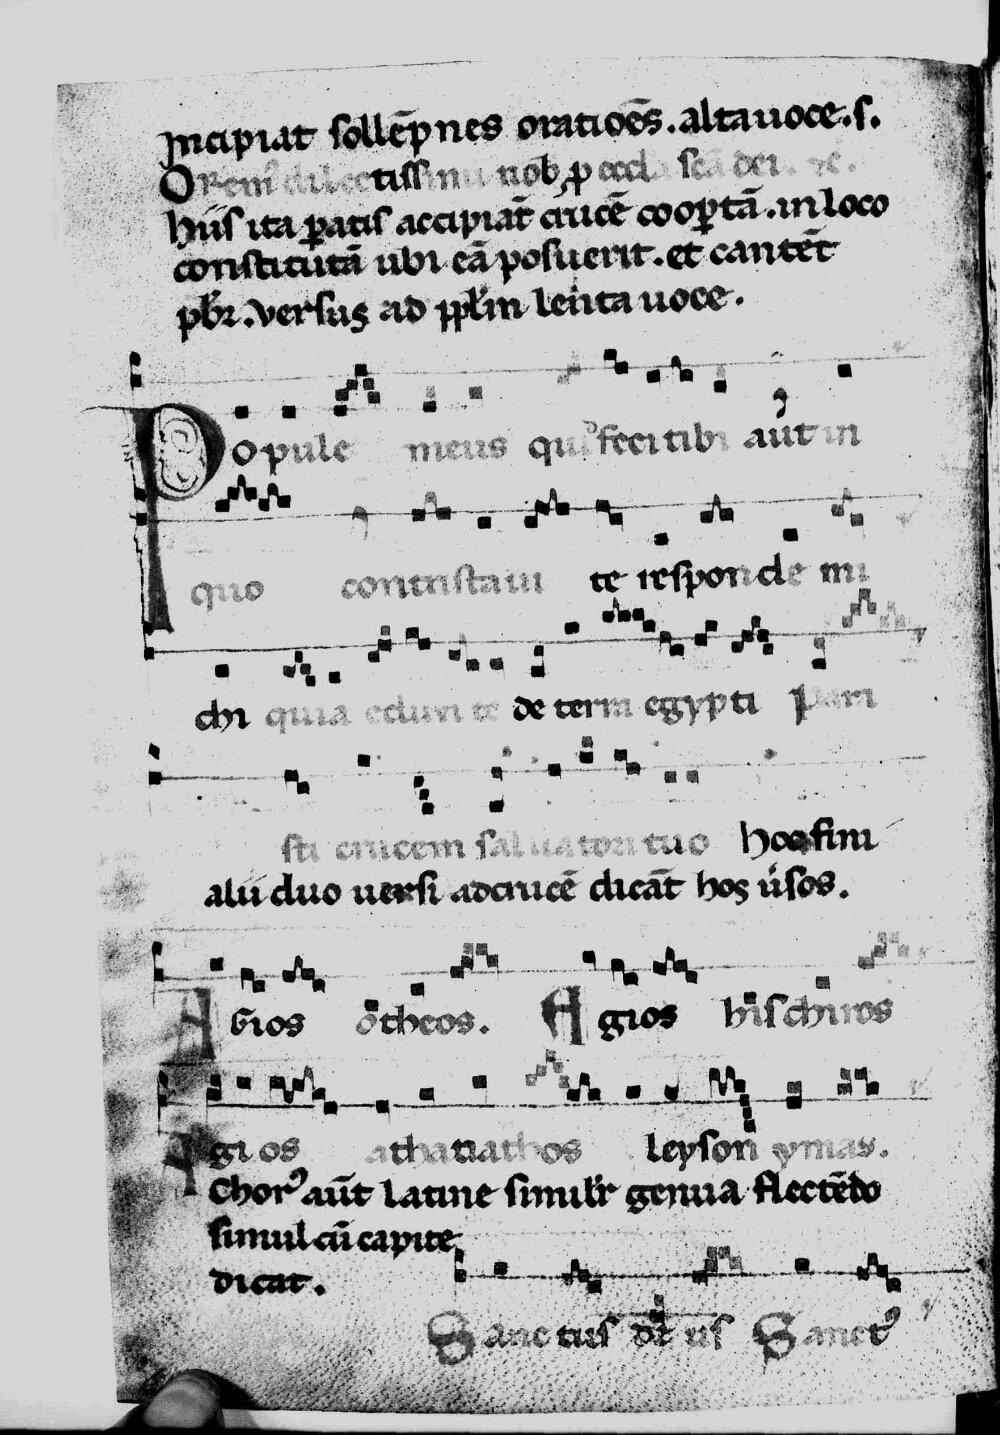 Incipiat sollēpnes oratiōes. alta uoce. s.
Orem᷒ dilectissimi nob̄ ꝓ eccl̄a sc̄a dei. ⁊c.
hiis ita ꝑatis accipiat̄ crucē cooꝑtā. in loco
constitutā ubi eā posuerit. et cantēt
pbr̄. versus ad pplm̄ lenta uoce.
Popule meus quͥd feci tibi aut in
quo contristaui te responde mi
chi quia eduxi te de terra egypti Para
sti crucem saluatori tuo Hoc fini
alii duo uersi ad crucē dicāt hos ūsos.
Agios otheos. Agios hischiros
Agios athanathos leyson ymas.
Chorꝰ aūt latine simulr̄ genua flectēdo
simul cū capite
dicat.
Sanctus ds̄ us Sanctꝰ